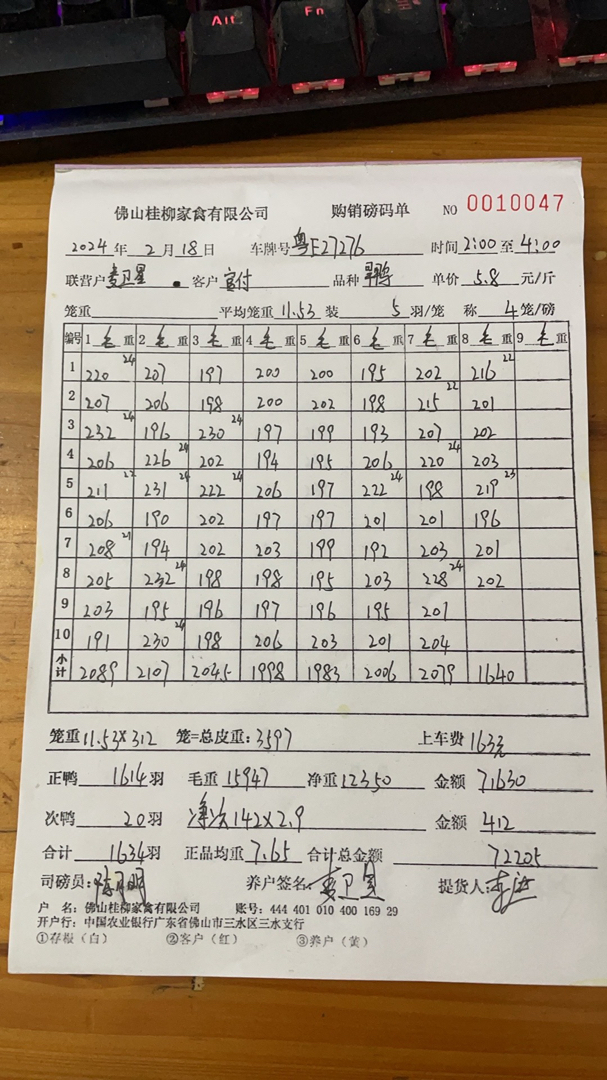 Alt Fn
佛山桂柳家禽有限公司 购销磅码单 NO 0010047
2024年 2月18日 车牌号 粤E27276 时间 2:00 至 4:00
联营户 麦卫星 客户 官付 品种 单价 5.8 元/斤
笼重 平均笼重 11.53 装 5 羽/笼 称 4 笼/磅
编号 1 毛 重 2 毛 重 3 毛 重 4 毛 重 5 毛 重 6 毛 重 7 毛 重 8 毛 重 9 毛 重
1 220 24 207 197 200 200 195 202 216 22
2 207 206 198 200 202 198 215 22 201
3 232 24 196 230 24 197 199 193 207 202
4 206 226 24 202 194 195 206 220 24 203
5 211 22 231 24 222 24 206 197 222 24 198 219 23
6 206 190 202 197 197 201 201 196
7 208 21 194 202 203 199 192 203 201
8 205 232 24 198 198 195 203 228 24 202
9 203 195 196 197 196 195 201
10 191 230 24 198 206 203 201 204
小计 2089 2107 2045 1998 1983 2006 2079 1640
笼重 11.53×312 笼=总皮重: 3597 上车费 163元
正鸭 1614 羽 毛重 15947 净重 12350 金额 71630
次鸭 20 羽 净次 142×2.9 金额 412
合计 1634 羽 正品均重 7.65 合计总金额 72205
司磅员: 养户签名: 麦卫星 提货人:
户 名: 佛山桂柳家禽有限公司 账号: 444 401 010 400 169 29
开户行: 中国农业银行广东省佛山市三水区三水支行
①存根（白） ②客户（红） ③养户（黄）